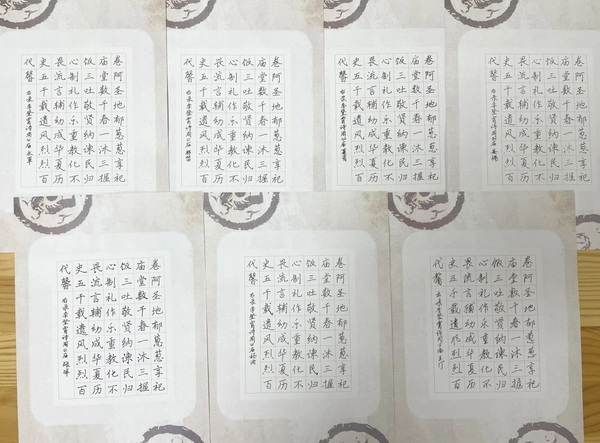 卷阿圣地郁葱葱享祀
庙堂数千春一沐三握
饭三吐敬贤纳谏民归
心制礼作乐重教化不
畏流言辅幼成华夏历
史五千载遗风烈烈百
代馨 右录李登霄诗周公庙
卷阿圣地郁葱葱享祀
庙堂数千春一沐三握
饭三吐敬贤纳谏民归
心制礼作乐重教化不
畏流言辅幼成华夏历
史五千载遗风烈烈百
代馨 右录李登霄诗周公庙
卷阿圣地郁葱葱享祀
庙堂数千春一沐三握
饭三吐敬贤纳谏民归
心制礼作乐重教化不
畏流言辅幼成华夏历
史五千载遗风烈烈百
代馨 右录李登霄诗周公庙
卷阿圣地郁葱葱享祀
庙堂数千春一沐三握
饭三吐敬贤纳谏民归
心制礼作乐重教化不
畏流言辅幼成华夏历
史五千载遗风烈烈百
代馨 右录李登霄诗周公庙
卷阿圣地郁葱葱享祀
庙堂数千春一沐三握
饭三吐敬贤纳谏民归
心制礼作乐重教化不
畏流言辅幼成华夏历
史五千载遗风烈烈百
代馨 右录李登霄诗周公庙
卷阿圣地郁葱葱享祀
庙堂数千春一沐三握
饭三吐敬贤纳谏民归
心制礼作乐重教化不
畏流言辅幼成华夏历
史五千载遗风烈烈百
代馨 右录李登霄诗周公庙
卷阿圣地郁葱葱享祀
庙堂数千春一沐三握
饭三吐敬贤纳谏民归
心制礼作乐重教化不
畏流言辅幼成华夏历
史五千载遗风烈烈百
代馨 右录李登霄诗周公庙